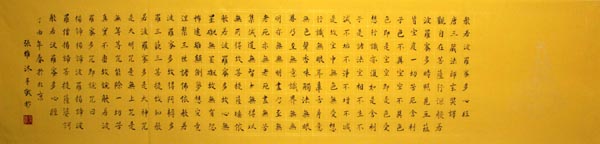 般若波羅蜜多心經
唐三藏法師玄奘譯
觀自在菩薩行深般若
波羅蜜多時照見五蘊
皆空度一切苦厄舍利
子色不異空空不異色
色即是空空即是色受
想行識亦復如是舍利
子是諸法空相不生不
滅不垢不淨不增不減
是故空中無色無受想
行識無眼耳鼻舌身意
無色聲香味觸法無眼
界乃至無意識界無無
明亦無無明盡乃至無
老死亦無老死盡無苦
集滅道無智亦無得以
無所得故菩提薩埵依
般若波羅蜜多故心無
罣礙無罣礙故無有恐
怖遠離顛倒夢想究竟
涅槃三世諸佛依般若
波羅蜜多故得阿耨多
羅三藐三菩提故知般
若波羅蜜多是大神咒
是大明咒是無上咒是
無等等咒能除一切苦
真實不虛故說般若波
羅蜜多咒即說咒曰
揭諦揭諦波羅揭諦波
羅僧揭諦菩提薩婆訶
般若波羅蜜多心經
丁酉年春於北京
張沐手敬